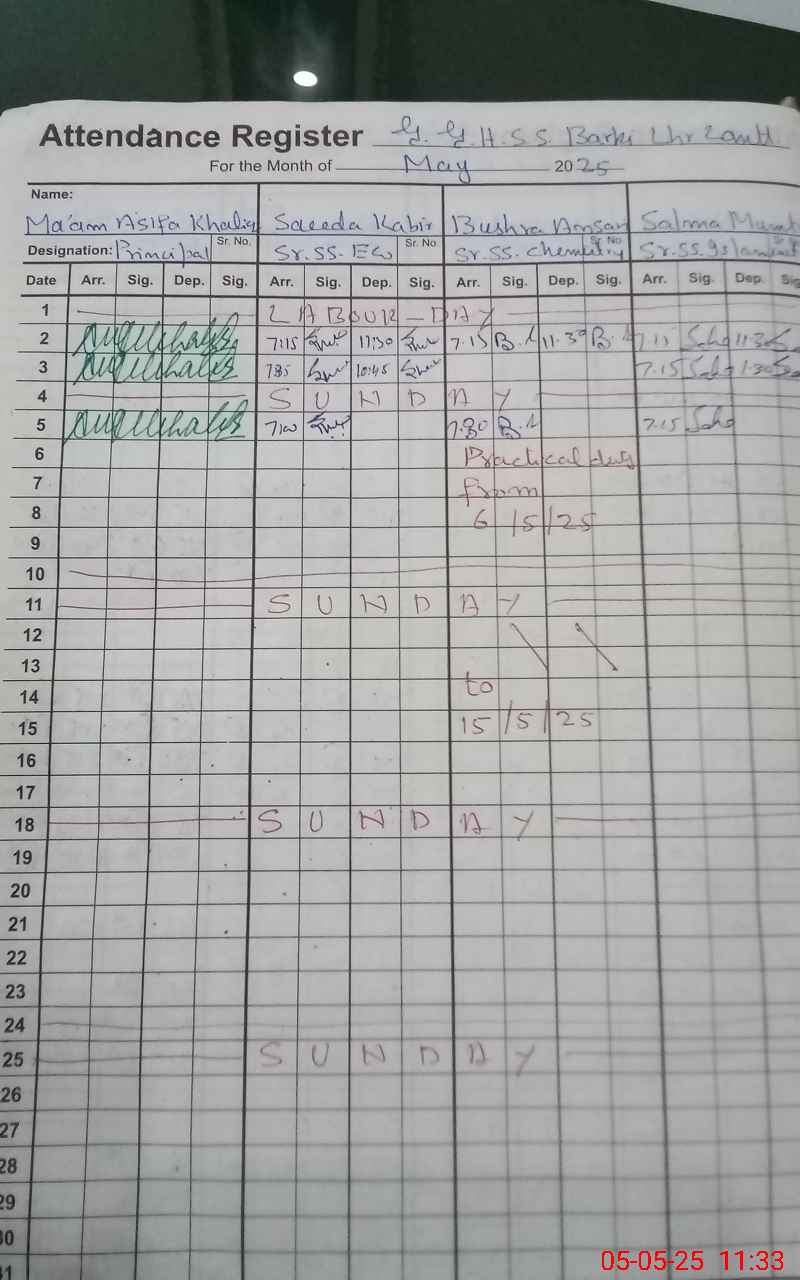 Attendance Register G.G.H.S.S. Barki Lhr Cantt
For the Month of May 2025
Name:
Ma'am Asifa Khaliq Saeeda Kabir Bushra Ansar Salma
Designation: Principal Sr. No. Sr. SS. Eco Sr. No Sr. SS. Chemistry Sr. No Sr. SS. Islamiat
Date Arr. Sig. Dep. Sig. Arr. Sig. Dep. Sig. Arr. Sig. Dep. Sig. Arr. Sig. Dep. Sig
1 LABOUR-DAY
2 7:15 11:30 7.15 B.A 11.30 B.A 7.15 11.30
3 10:45 7.15 1.30
4 SUNDAY
5 7:00 7.30 B.A 7.15
6 Practical duty
7 from
8 6/5/25
9
10
11 SUNDAY
12
13
14 to
15 15/5/25
16
17
18 SUNDAY
19
20
21
22
23
24
25 SUNDAY
26
27
28
29
30
31
05-05-25 11:33